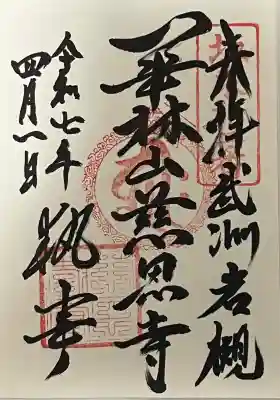 奉拝武州岩槻
華林山慈恩寺
執事
令和七年
四月一日